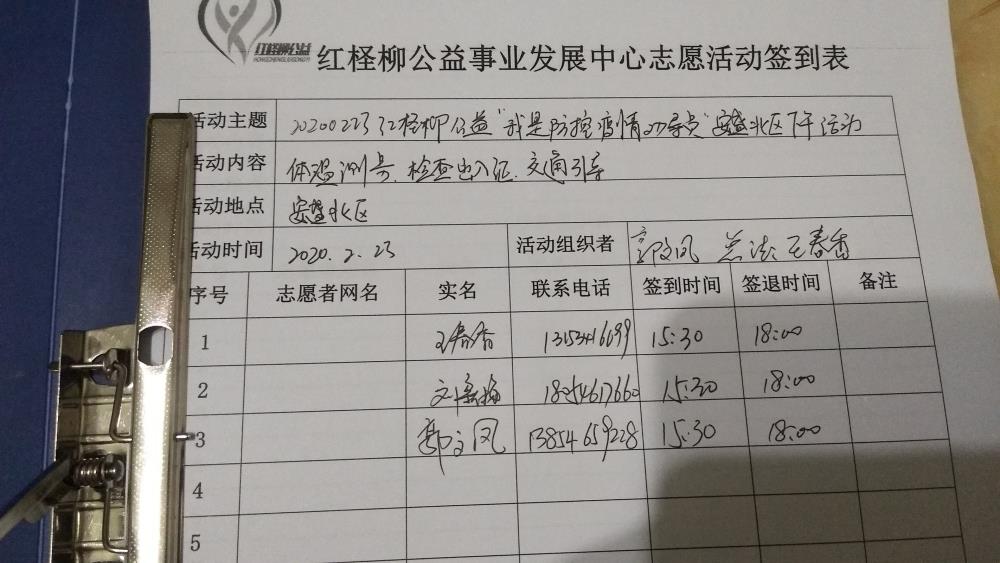 红柽柳公益
HONGCHENGLIUGONGYI
红柽柳公益事业发展中心志愿活动签到表
活动主题 20200223红柽柳公益"我是防控疫情劝导员"安盛北区下午活动
活动内容 体温测量、检查出入证、交通引导
活动地点 安盛北区
活动时间 2020.2.23 活动组织者 郭文凤 王春香
序号 志愿者网名 实名 联系电话 签到时间 签退时间 备注
1 王春香 15:30 18:00
2 18254617660 15:30 18:00
3 郭文凤 13854659228 15:30 18:00
4
5